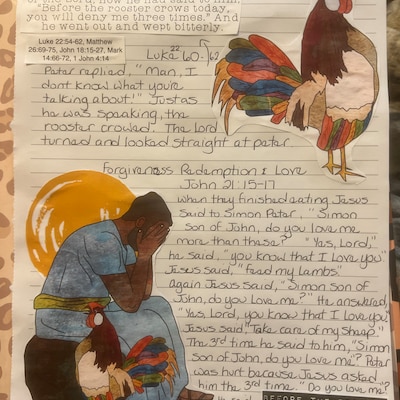 of the Lord, how he had said to him,
"Before the rooster crows today,
you will deny me three times." And he
went out and wept bitterly.
Luke 22:54-62, Matthew
26:69-75, John 18:15-27, Mark
14:66-72, 1 John 4:14
Luke 22 60-62
Peter replied, "Man, I
dont know what your
talking about!" Just as
he was speaking, the
rooster crowed. The lord
turned and looked straight at peter
Forgiveness Redemption & Love
John 21:15-17
When they finished eating Jesus
Said to Simon Peter, "Simon
son of John, do you love me
more than these?" "Yes, Lord,"
he said, "you know that I love you"
Jesus said, "feed my lambs"
Again Jesus said, "Simon son of
John, do you love me?" He answered,
"Yes, Lord, you know that I love you"
Jesus said "Take care of my sheep."
The 3rd time he said to him, "Simon
son of John, do you love me? Peter
was hurt because Jesus asked
him the 3rd time. "Do you love me?"
He said
BEFORE THE